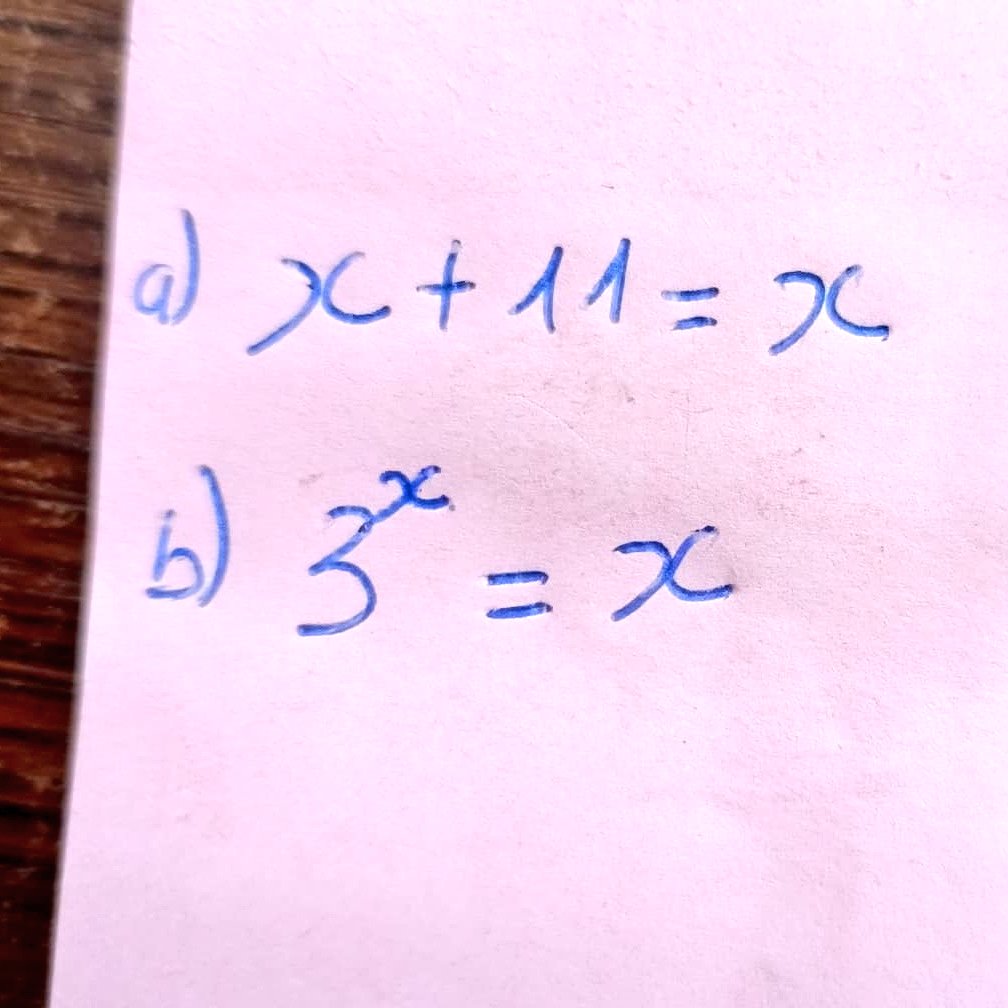 a) x + 11 = x
b) 3ˣ = x